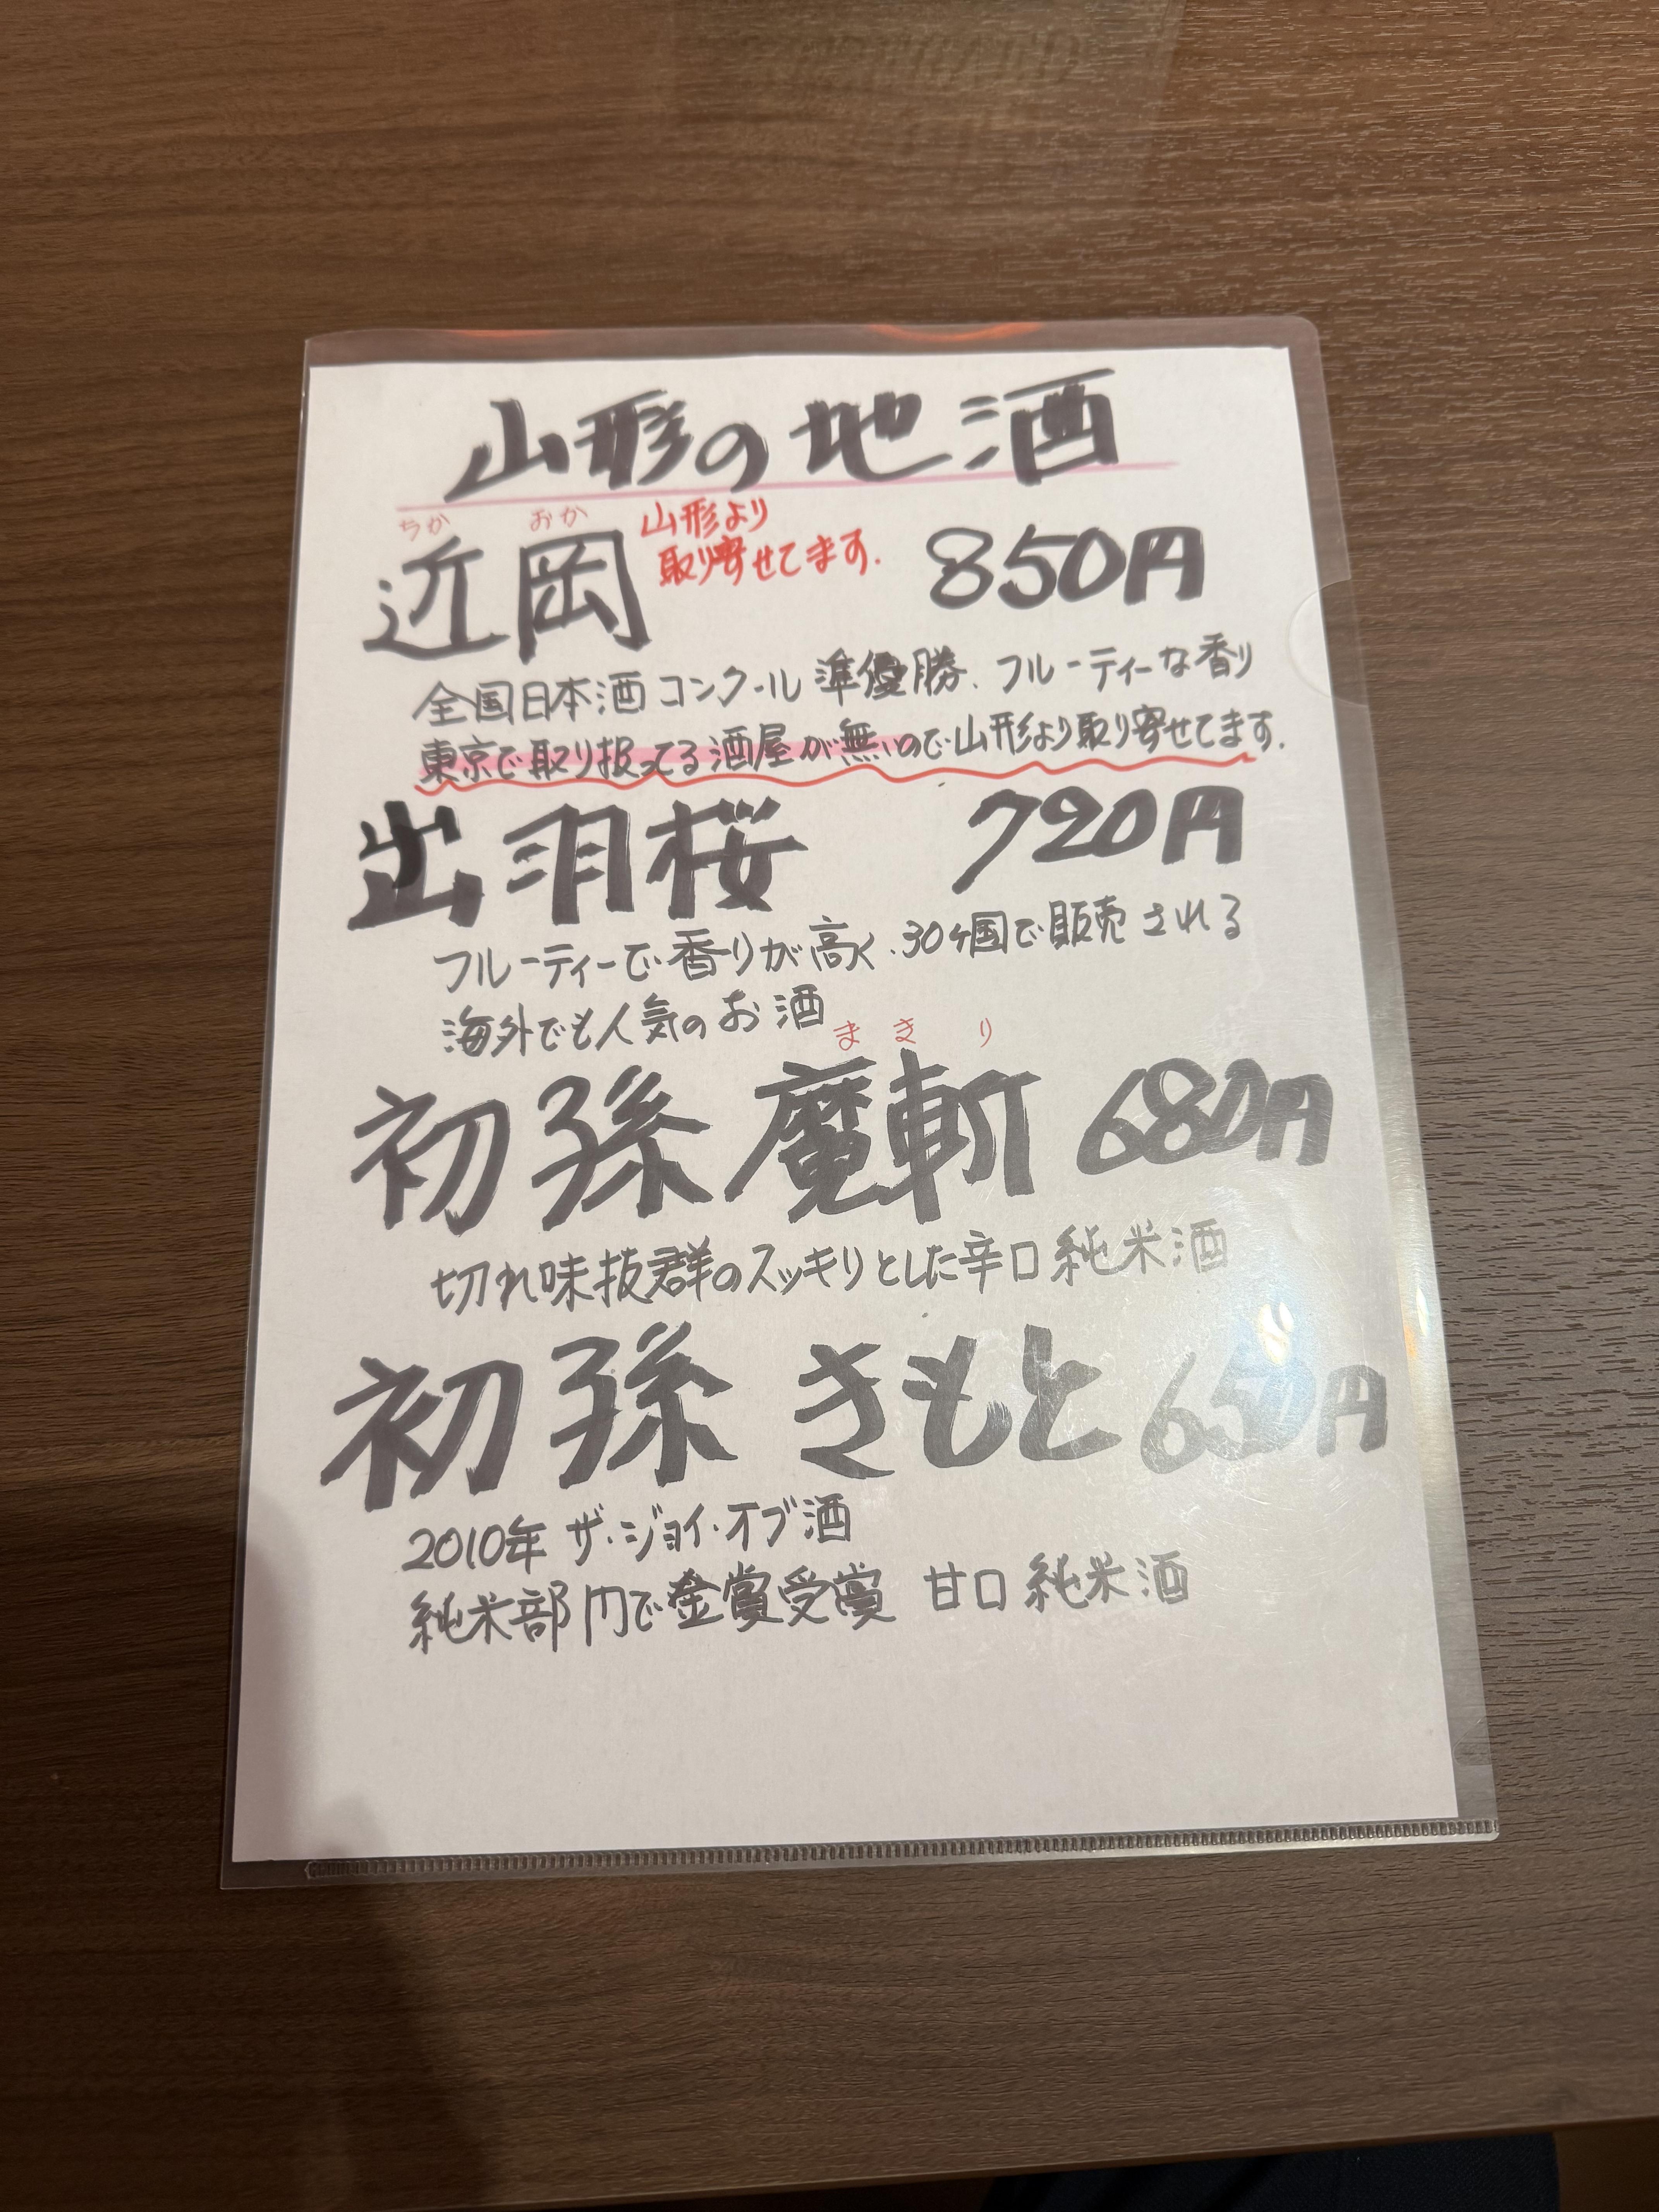 山形の地酒
ちかおか
近岡 山形より 850円
取り寄せてます.
全国日本酒コンクール準優勝、フルーティーな香り
東京で取り扱ってる酒屋が無いので山形より取り寄せてます.
出羽桜 720円
フルーティーで香りが高く、30ヶ国で販売される
海外でも人気のお酒
まきり
初孫 魔斬 680円
切れ味抜群のスッキリとした辛口純米酒
初孫 きもと 650円
2010年 ザ・ジョイ・オブ酒
純米部門で金賞受賞 甘口純米酒